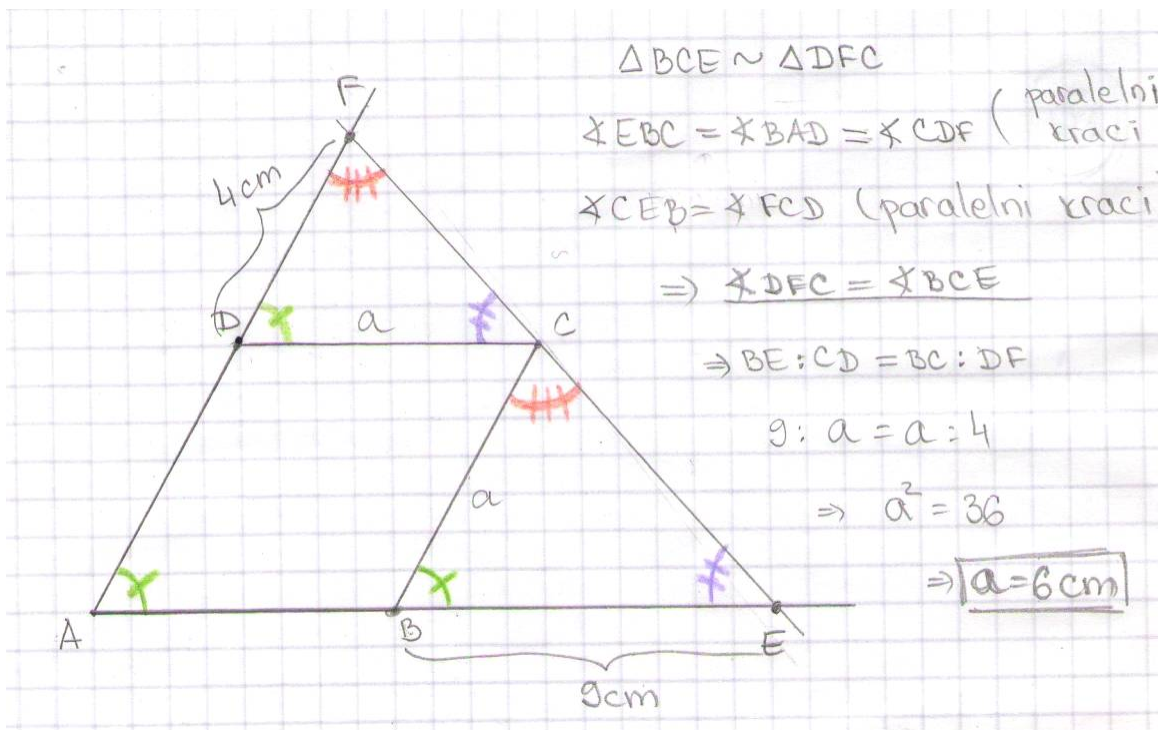 F
4cm
D
a
C
a
A
B
E
9cm
△BCE ~ △DFC
∢EBC = ∢BAD = ∢CDF (paralelni
kraci
∢CEB = ∢FCD (paralelni kraci
⇒ ∢DFC = ∢BCE
⇒ BE : CD = BC : DF
9 : a = a : 4
⇒ a² = 36
⇒ a = 6cm